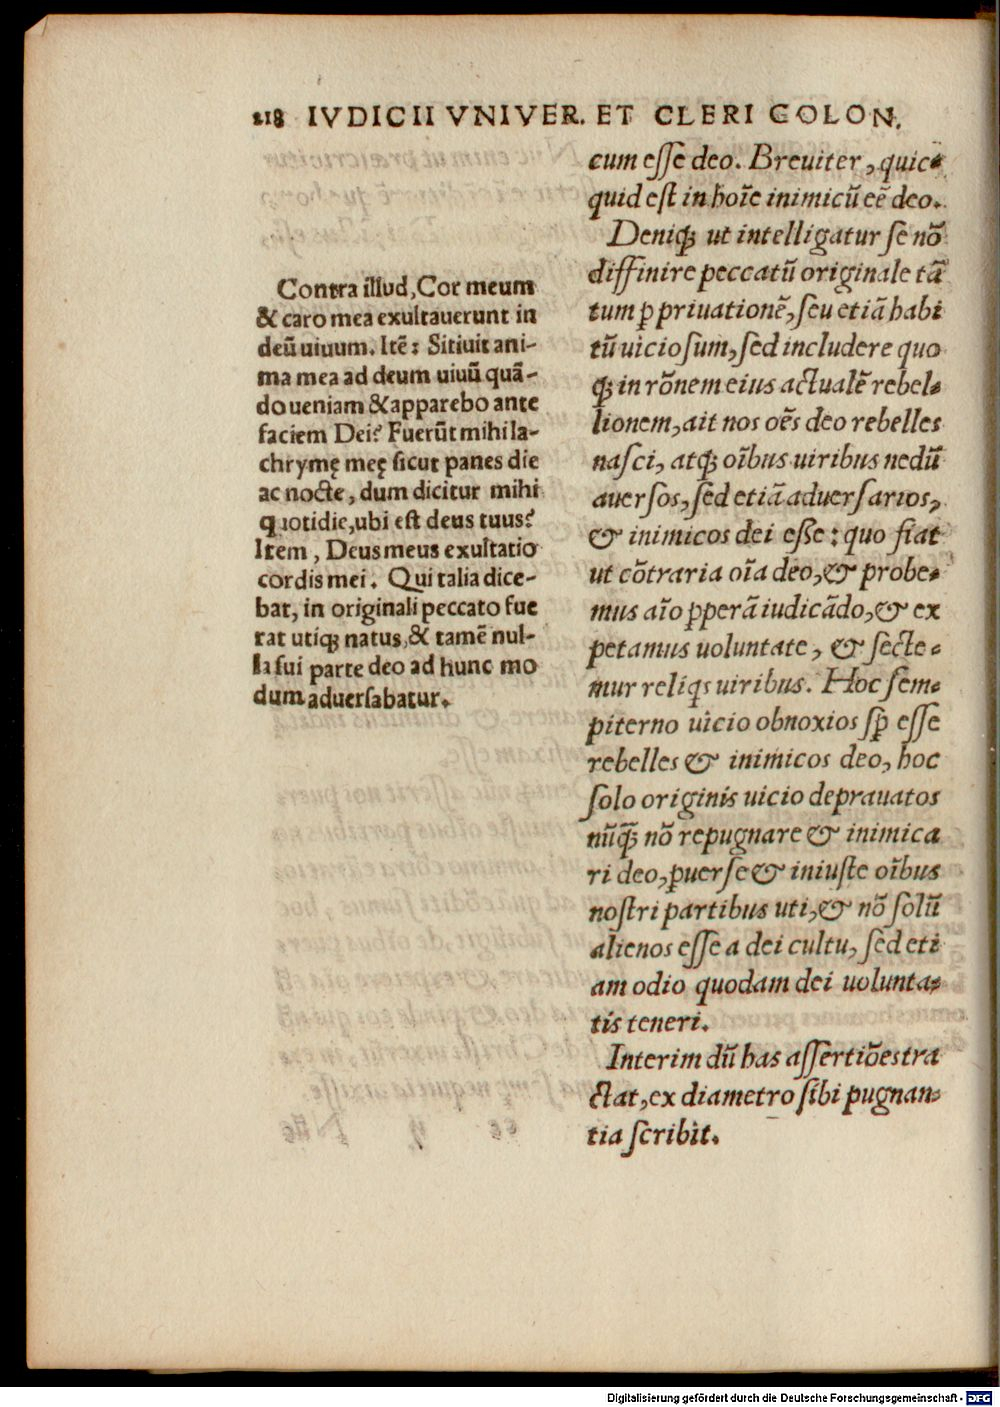 218 IVDICII VNIVER. ET CLERI COLON.
Contra illud, Cor meum
& caro mea exultauerunt in
deū uiuum. Itē: Sitiuit ani-
ma mea ad deum uiuū quā-
do ueniam & apparebo ante
faciem Dei? Fuerūt mihi la-
chrymę meę sicut panes die
ac nocte, dum dicitur mihi
quotidie, ubi est deus tuus?
Item, Deus meus exultatio
cordis mei. Qui talia dice-
bat, in originali peccato fue
rat utiqꝫ natus, & tamē nul-
la sui parte deo ad hunc mo
dum aduersabatur.
cum esse deo. Breuiter, quic-
quid est in hoīe inimicū eē deo.
Deniqꝫ ut intelligatur se nō
diffinire peccatū originale tā
tum ꝑ priuationē, seu etiā habi
tū uiciosum, sed includere quo
qꝫ in rōnem eius actualē rebel-
lionem, ait nos oēs deo rebelles
nasci, atqꝫ oībus uiribus nedū
auersos, sed etiā aduersarios,
& inimicos dei esse: quo fiat
ut cōtraria oīa deo, & probe-
mus aīo ꝑperā iudicādo, & ex
petamus uoluntate, & secte-
mur reliqs uiribus. Hoc sem-
piterno uicio obnoxios sꝑ esse
rebelles & inimicos deo, hoc
solo originis uicio deprauatos
nūqꝫ̄ nō repugnare & inimica
ri deo, ꝑuerse & iniuste oībus
nostri partibus uti, & nō solū
alienos esse a dei cultu, sed eti
am odio quodam dei uolunta-
tis teneri.
Interim dū has assertiōes tra
ctat, ex diametro sibi pugnan-
tia scribit.
Digitalisierung gefördert durch die Deutsche Forschungsgemeinschaft - DFG